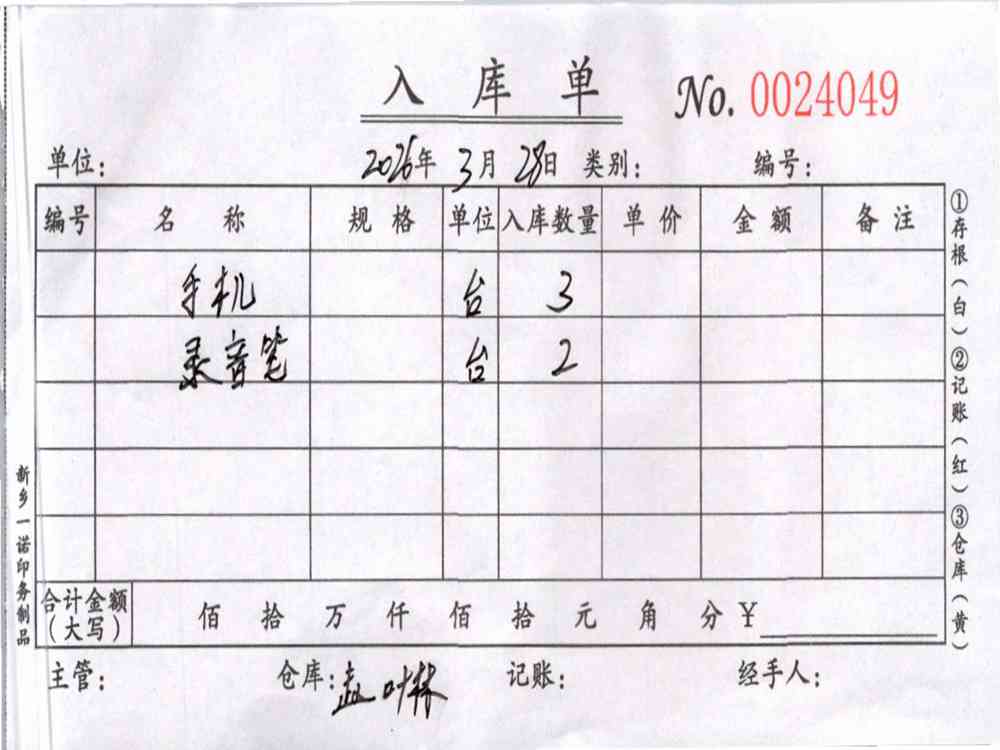 入库单 No. 0024049
单位: 2026年 3月 28日 类别: 编号:
编号 名称 规格 单位 入库数量 单价 金额 备注
手机 台 3
录音笔 台 2
合计金额(大写) 佰 拾 万 仟 佰 拾 元 角 分 ¥
主管: 仓库:赵叶林 记账: 经手人:
①存根(白)②记账(红)③仓库(黄)
新乡一诺印务制品